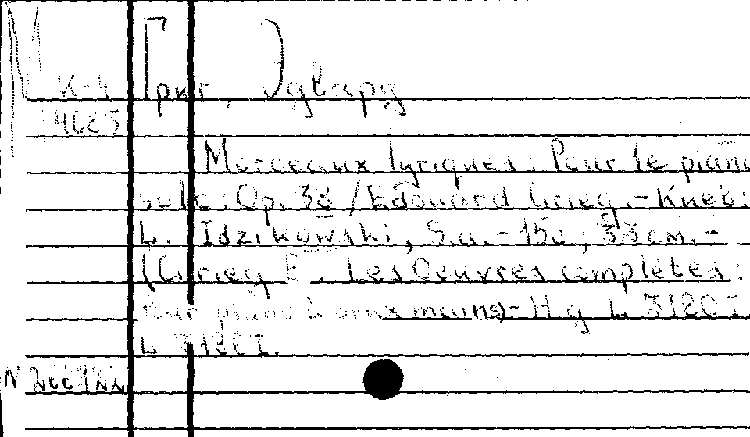 М
К-4 Григ, Эдвард
Morceaux lyriques: Pour le piano
solo: Op. 38 / Edouard Grieg. - Киев:
L. Idzikowski, S.a. - 15c.; 33 см. -
(Grieg E. Les Oeuvres complètes:
Pour piano à deux mains) - Н.д. L
L
N